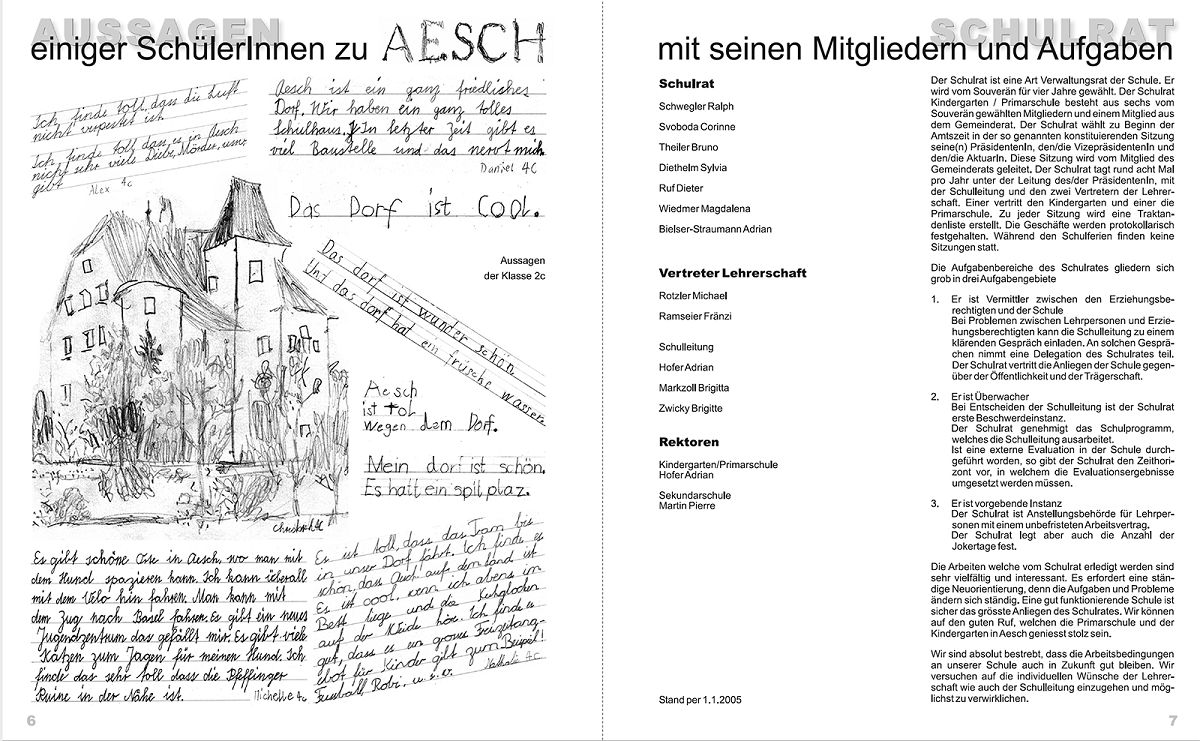 AUSSAGEN
einiger SchülerInnen zu AESCH
Ich finde toll, dass die Luft
nicht verpestet ist.
Ich finde toll, dass es in Aesch
nicht sehr viele Diebe, Mörder, usw.
gibt
Alex 4c
Aesch ist ein ganz friedliches
Dorf. Wir haben ein ganz tolles
Schulhaus. In letzter Zeit gibt es
viel Baustelle und das nervt mich.
Daniel 4C
Das Dorf ist Cool.
Aussagen
der Klasse 2c
Das dorf ist wunder schön
Und das dorf hat ein frusche wasser
Aesch
ist tol
wegen dem Dorf.
Mein dorf ist schön.
Es hatt ein spilplaz.
Es gibt schöne Orte in Aesch, wo man mit
dem Hund spazieren kann. Ich kann überall
mit dem Velo hin fahren. Man kann mit
dem Zug nach Basel fahren. Es gibt ein neues
Jugendzentrum das gefällt mir. Es gibt viele
Katzen zum Jagen für meinen Hund. Ich
finde das sehr toll dass die Pfeffinger
Ruine in der Nähe ist.
Michelle 4c
Es ist toll, dass das Tram bis
in unser Dorf fährt. Ich finde es
schön, dass Aesch auf dem land ist
Es ist cool, wenn ich abens im
Bett liege und die Kuhgloden
auf der Weide hör. Ich finde es
gut, dass es ein gross Freizeitang-
ebot für Kinder gibt zum Beispil!
Fussball, Robi, u. s. w.
Nathalie 4c
6
SCHULRAT
mit seinen Mitgliedern und Aufgaben
Schulrat
Schwegler Ralph
Svoboda Corinne
Theiler Bruno
Diethelm Sylvia
Ruf Dieter
Wiedmer Magdalena
Bielser-Straumann Adrian
Vertreter Lehrerschaft
Rotzler Michael
Ramseier Fränzi
Schulleitung
Hofer Adrian
Markzoll Brigitta
Zwicky Brigitte
Rektoren
Kindergarten/Primarschule
Hofer Adrian
Sekundarschule
Martin Pierre
Stand per 1.1.2005
Der Schulrat ist eine Art Verwaltungsrat der Schule. Er
wird vom Souverän für vier Jahre gewählt. Der Schulrat
Kindergarten / Primarschule besteht aus sechs vom
Souverän gewählten Mitgliedern und einem Mitglied aus
dem Gemeinderat. Der Schulrat wählt zu Beginn der
Amtszeit in der so genannten konstituierenden Sitzung
seine(n) PräsidentenIn, den/die VizepräsidentenIn und
den/die AktuarIn. Diese Sitzung wird vom Mitglied des
Gemeinderats geleitet. Der Schulrat tagt rund acht Mal
pro Jahr unter der Leitung des/der PräsidentenIn, mit
der Schulleitung und den zwei Vertretern der Lehrer-
schaft. Einer vertritt den Kindergarten und einer die
Primarschule. Zu jeder Sitzung wird eine Traktan-
denliste erstellt. Die Geschäfte werden protokollarisch
festgehalten. Während den Schulferien finden keine
Sitzungen statt.
Die Aufgabenbereiche des Schulrates gliedern sich
grob in drei Aufgabengebiete
1. Er ist Vermittler zwischen den Erziehungsbe-
rechtigten und der Schule
Bei Problemen zwischen Lehrpersonen und Erzie-
hungsberechtigten kann die Schulleitung zu einem
klärenden Gespräch einladen. An solchen Gesprä-
chen nimmt eine Delegation des Schulrates teil.
Der Schulrat vertritt die Anliegen der Schule gegen-
über der Öffentlichkeit und der Trägerschaft.
2. Er ist Überwacher
Bei Entscheiden der Schulleitung ist der Schulrat
erste Beschwerdeinstanz.
Der Schulrat genehmigt das Schulprogramm,
welches die Schulleitung ausarbeitet.
Ist eine externe Evaluation in der Schule durch-
geführt worden, so gibt der Schulrat den Zeithori-
zont vor, in welchem die Evaluationsergebnisse
umgesetzt werden müssen.
3. Er ist vorgebende Instanz
Der Schulrat ist Anstellungsbehörde für Lehrper-
sonen mit einem unbefristeten Arbeitsvertrag.
Der Schulrat legt aber auch die Anzahl der
Jokertage fest.
Die Arbeiten welche vom Schulrat erledigt werden sind
sehr vielfältig und interessant. Es erfordert eine stän-
dige Neuorientierung, denn die Aufgaben und Probleme
ändern sich ständig. Eine gut funktionierende Schule ist
sicher das grösste Anliegen des Schulrates. Wir können
auf den guten Ruf, welchen die Primarschule und der
Kindergarten in Aesch geniesst stolz sein.
Wir sind absolut bestrebt, dass die Arbeitsbedingungen
an unserer Schule auch in Zukunft gut bleiben. Wir
versuchen auf die individuellen Wünsche der Lehrer-
schaft wie auch der Schulleitung einzugehen und mög-
lichst zu verwirklichen.
7